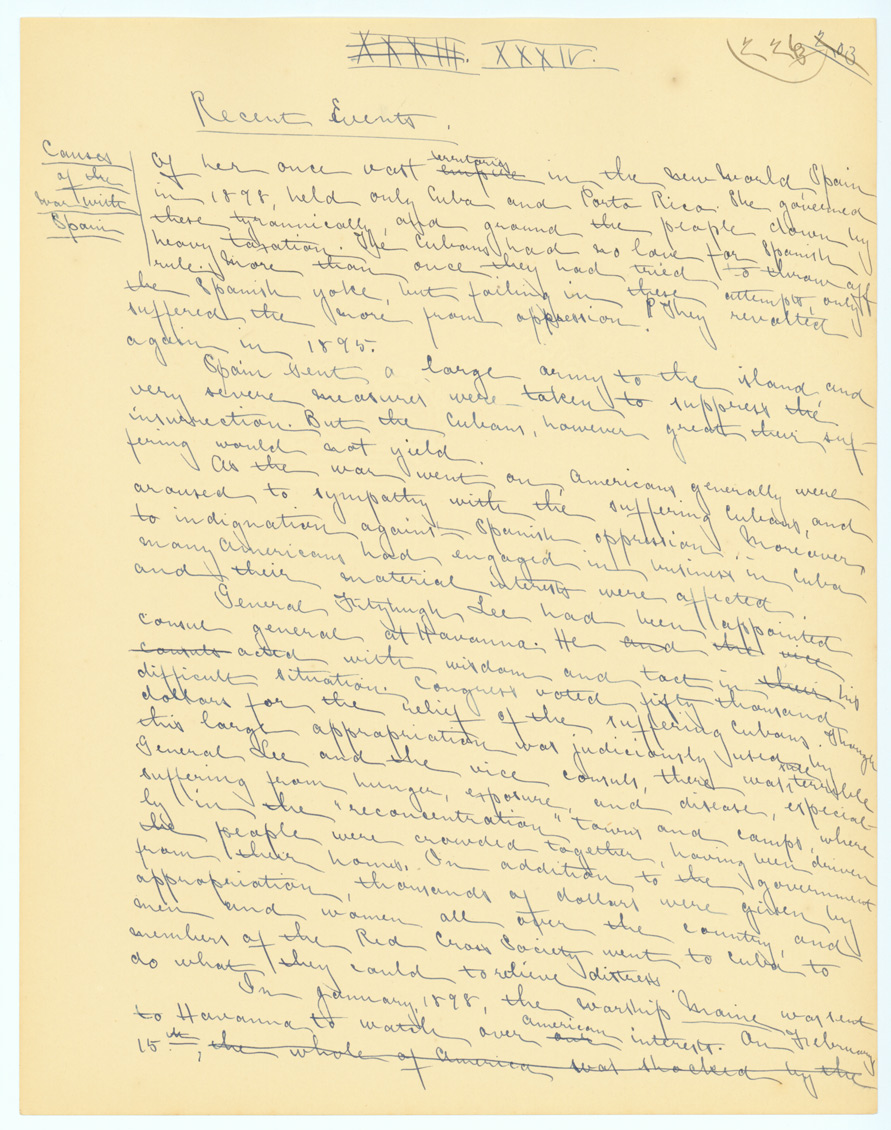 XXXIII. XXXIV.
Recent Events.
Causes
of the
war with
Spain
Of her once vast empire territories in the new world Spain
in 1898, held only Cuba and Porto Rico. She governed
these tyrannically, and ground the people down by
heavy taxation. The Cubans had no love for Spanish
rule. More than once they had tried to throw off
the Spanish yoke, but failing in these attempts, only
suffered the more from oppression. They revolted
again in 1895.
Spain sent a large army to the island and
very severe measures were taken to suppress the
insurrection. But the Cubans, however great their suf-
fering would not yield.
As the war went on, Americans generally were
aroused to sympathy with the suffering Cubans, and
to indignation against Spanish oppression. Moreover,
many Americans had engaged in business in Cuba
and their material interests were affected.
General Fitzhugh Lee had been appointed
consul general at Havanna. He and the vice
consuls acted with wisdom and tact in their his
difficult situation. Congress voted fifty thousand
dollars for the relief of the suffering Cubans. Though
this large appropriation was judiciously used by
General Lee and the vice consuls, there was terrible
suffering from hunger, exposure, and disease, especial-
ly in the "reconcentration" towns and camps, where
the people were crowded together, having been driven
from their homes. In addition to the government
appropriation, thousands of dollars were given by
men and women all over the country, and
members of the Red Cross Society went to Cuba to
do what they could to relieve distress.
In January, 1898, the warship Maine was sent
to Havanna to watch over our American interests. On February
15th, the whole of America was shocked by the